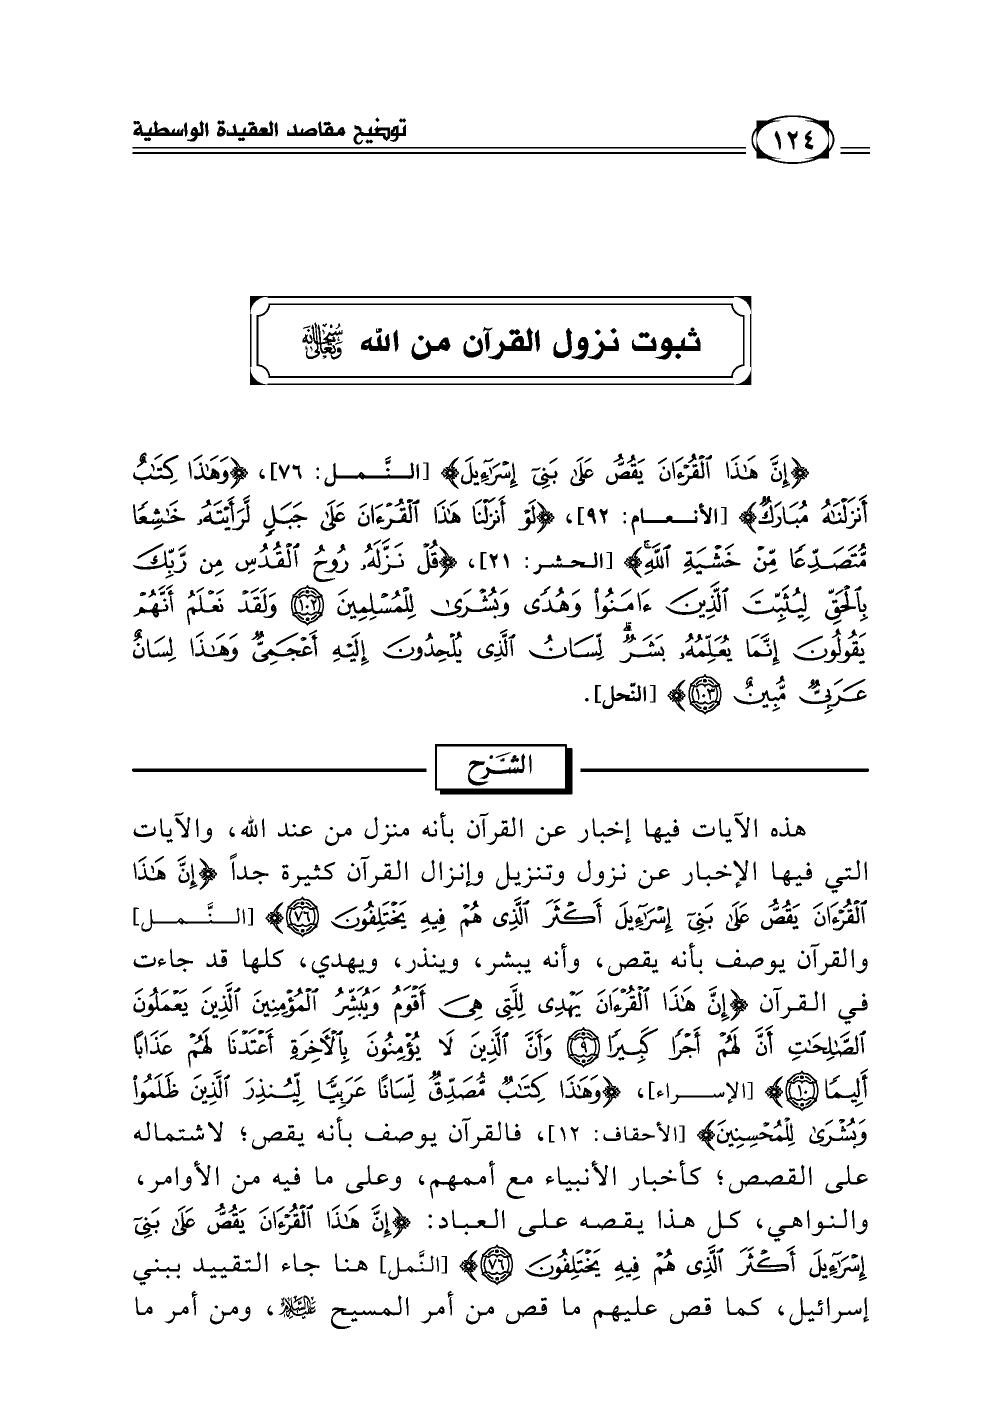 توضيح مقاصد العقيدة الواسطية
١٢٤
ثبوت نزول القرآن من الله ﷾
﴿إِنَّ هَٰذَا ٱلْقُرْءَانَ يَقُصُّ عَلَىٰ بَنِىٓ إِسْرَٰٓءِيلَ﴾ [الـنَّـمـل: ٧٦]، ﴿وَهَٰذَا كِتَٰبٌ
أَنزَلْنَٰهُ مُبَارَكٌ﴾ [الأنـعـام: ٩٢]، ﴿لَوْ أَنزَلْنَا هَٰذَا ٱلْقُرْءَانَ عَلَىٰ جَبَلٍ لَّرَأَيْتَهُۥ خَٰشِعًا
مُّتَصَدِّعًا مِّنْ خَشْيَةِ ٱللَّهِ﴾ [الحشر: ٢١]، ﴿قُلْ نَزَّلَهُۥ رُوحُ ٱلْقُدُسِ مِن رَّبِّكَ
بِٱلْحَقِّ لِيُثَبِّتَ ٱلَّذِينَ ءَامَنُوا۟ وَهُدًى وَبُشْرَىٰ لِلْمُسْلِمِينَ ١٠٢ وَلَقَدْ نَعْلَمُ أَنَّهُمْ
يَقُولُونَ إِنَّمَا يُعَلِّمُهُۥ بَشَرٌ ۗ لِّسَانُ ٱلَّذِى يُلْحِدُونَ إِلَيْهِ أَعْجَمِىٌّ وَهَٰذَا لِسَانٌ
عَرَبِىٌّ مُّبِينٌ ١٠٣﴾ [النّحل].
الشَّرْح
هذه الآيات فيها إخبار عن القرآن بأنه منزل من عند الله، والآيات
التي فيها الإخبار عن نزول وتنزيل وإنزال القرآن كثيرة جداً ﴿إِنَّ هَٰذَا
ٱلْقُرْءَانَ يَقُصُّ عَلَىٰ بَنِىٓ إِسْرَٰٓءِيلَ أَكْثَرَ ٱلَّذِى هُمْ فِيهِ يَخْتَلِفُونَ ٧٦﴾ [الـنَّـمـل]
والقرآن يوصف بأنه يقص، وأنه يبشر، وينذر، ويهدي، كلها قد جاءت
في القرآن ﴿إِنَّ هَٰذَا ٱلْقُرْءَانَ يَهْدِى لِلَّتِى هِىَ أَقْوَمُ وَيُبَشِّرُ ٱلْمُؤْمِنِينَ ٱلَّذِينَ يَعْمَلُونَ
ٱلصَّٰلِحَٰتِ أَنَّ لَهُمْ أَجْرًا كَبِيرًا ٩ وَأَنَّ ٱلَّذِينَ لَا يُؤْمِنُونَ بِٱلْأَخِرَةِ أَعْتَدْنَا لَهُمْ عَذَابًا
أَلِيمًا ١٠﴾ [الإسـراء]، ﴿وَهَٰذَا كِتَٰبٌ مُّصَدِّقٌ لِّسَانًا عَرَبِيًّا لِّيُنذِرَ ٱلَّذِينَ ظَلَمُوا۟
وَبُشْرَىٰ لِلْمُحْسِنِينَ﴾ [الأحقاف: ١٢]، فالقرآن يوصف بأنه يقص؛ لاشتماله
على القصص؛ كأخبار الأنبياء مع أممهم، وعلى ما فيه من الأوامر،
والنواهي، كل هذا يقصه على العباد: ﴿إِنَّ هَٰذَا ٱلْقُرْءَانَ يَقُصُّ عَلَىٰ بَنِىٓ
إِسْرَٰٓءِيلَ أَكْثَرَ ٱلَّذِى هُمْ فِيهِ يَخْتَلِفُونَ ٧٦﴾ [النَّمل] هنا جاء التقييد ببني
إسرائيل، كما قص عليهم ما قص من أمر المسيح عليه السلام، ومن أمر ما